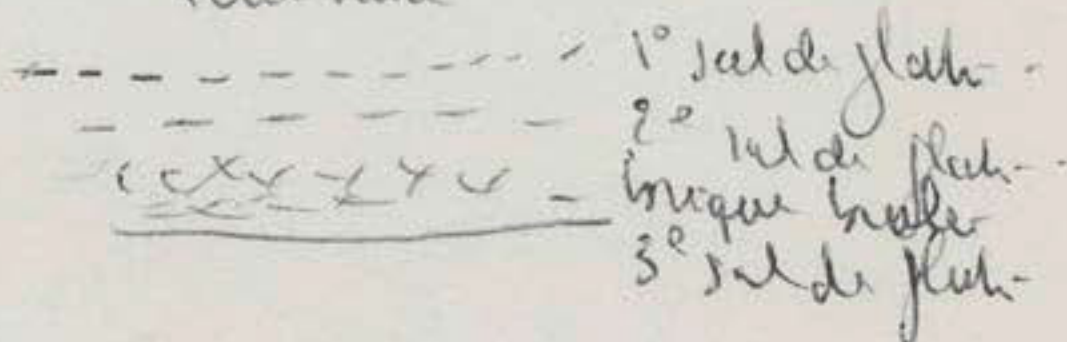 1° sol de plâtr
2° sol de plâtr
brique brulée
3° sol de plâtr